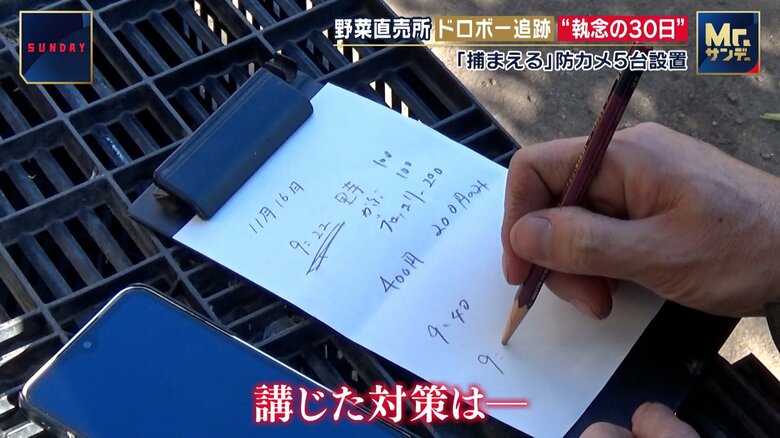 SUNDAY
野菜直売所 ドロボー追跡 “執念の30日”
「捕まえる」防カメ5台設置
Mr.
サンデー
11月16日
9:22 里芋 100
かぶ 100
ブロッコリー 200
400円 200円のみ
9:40
9:
講じた対策は―